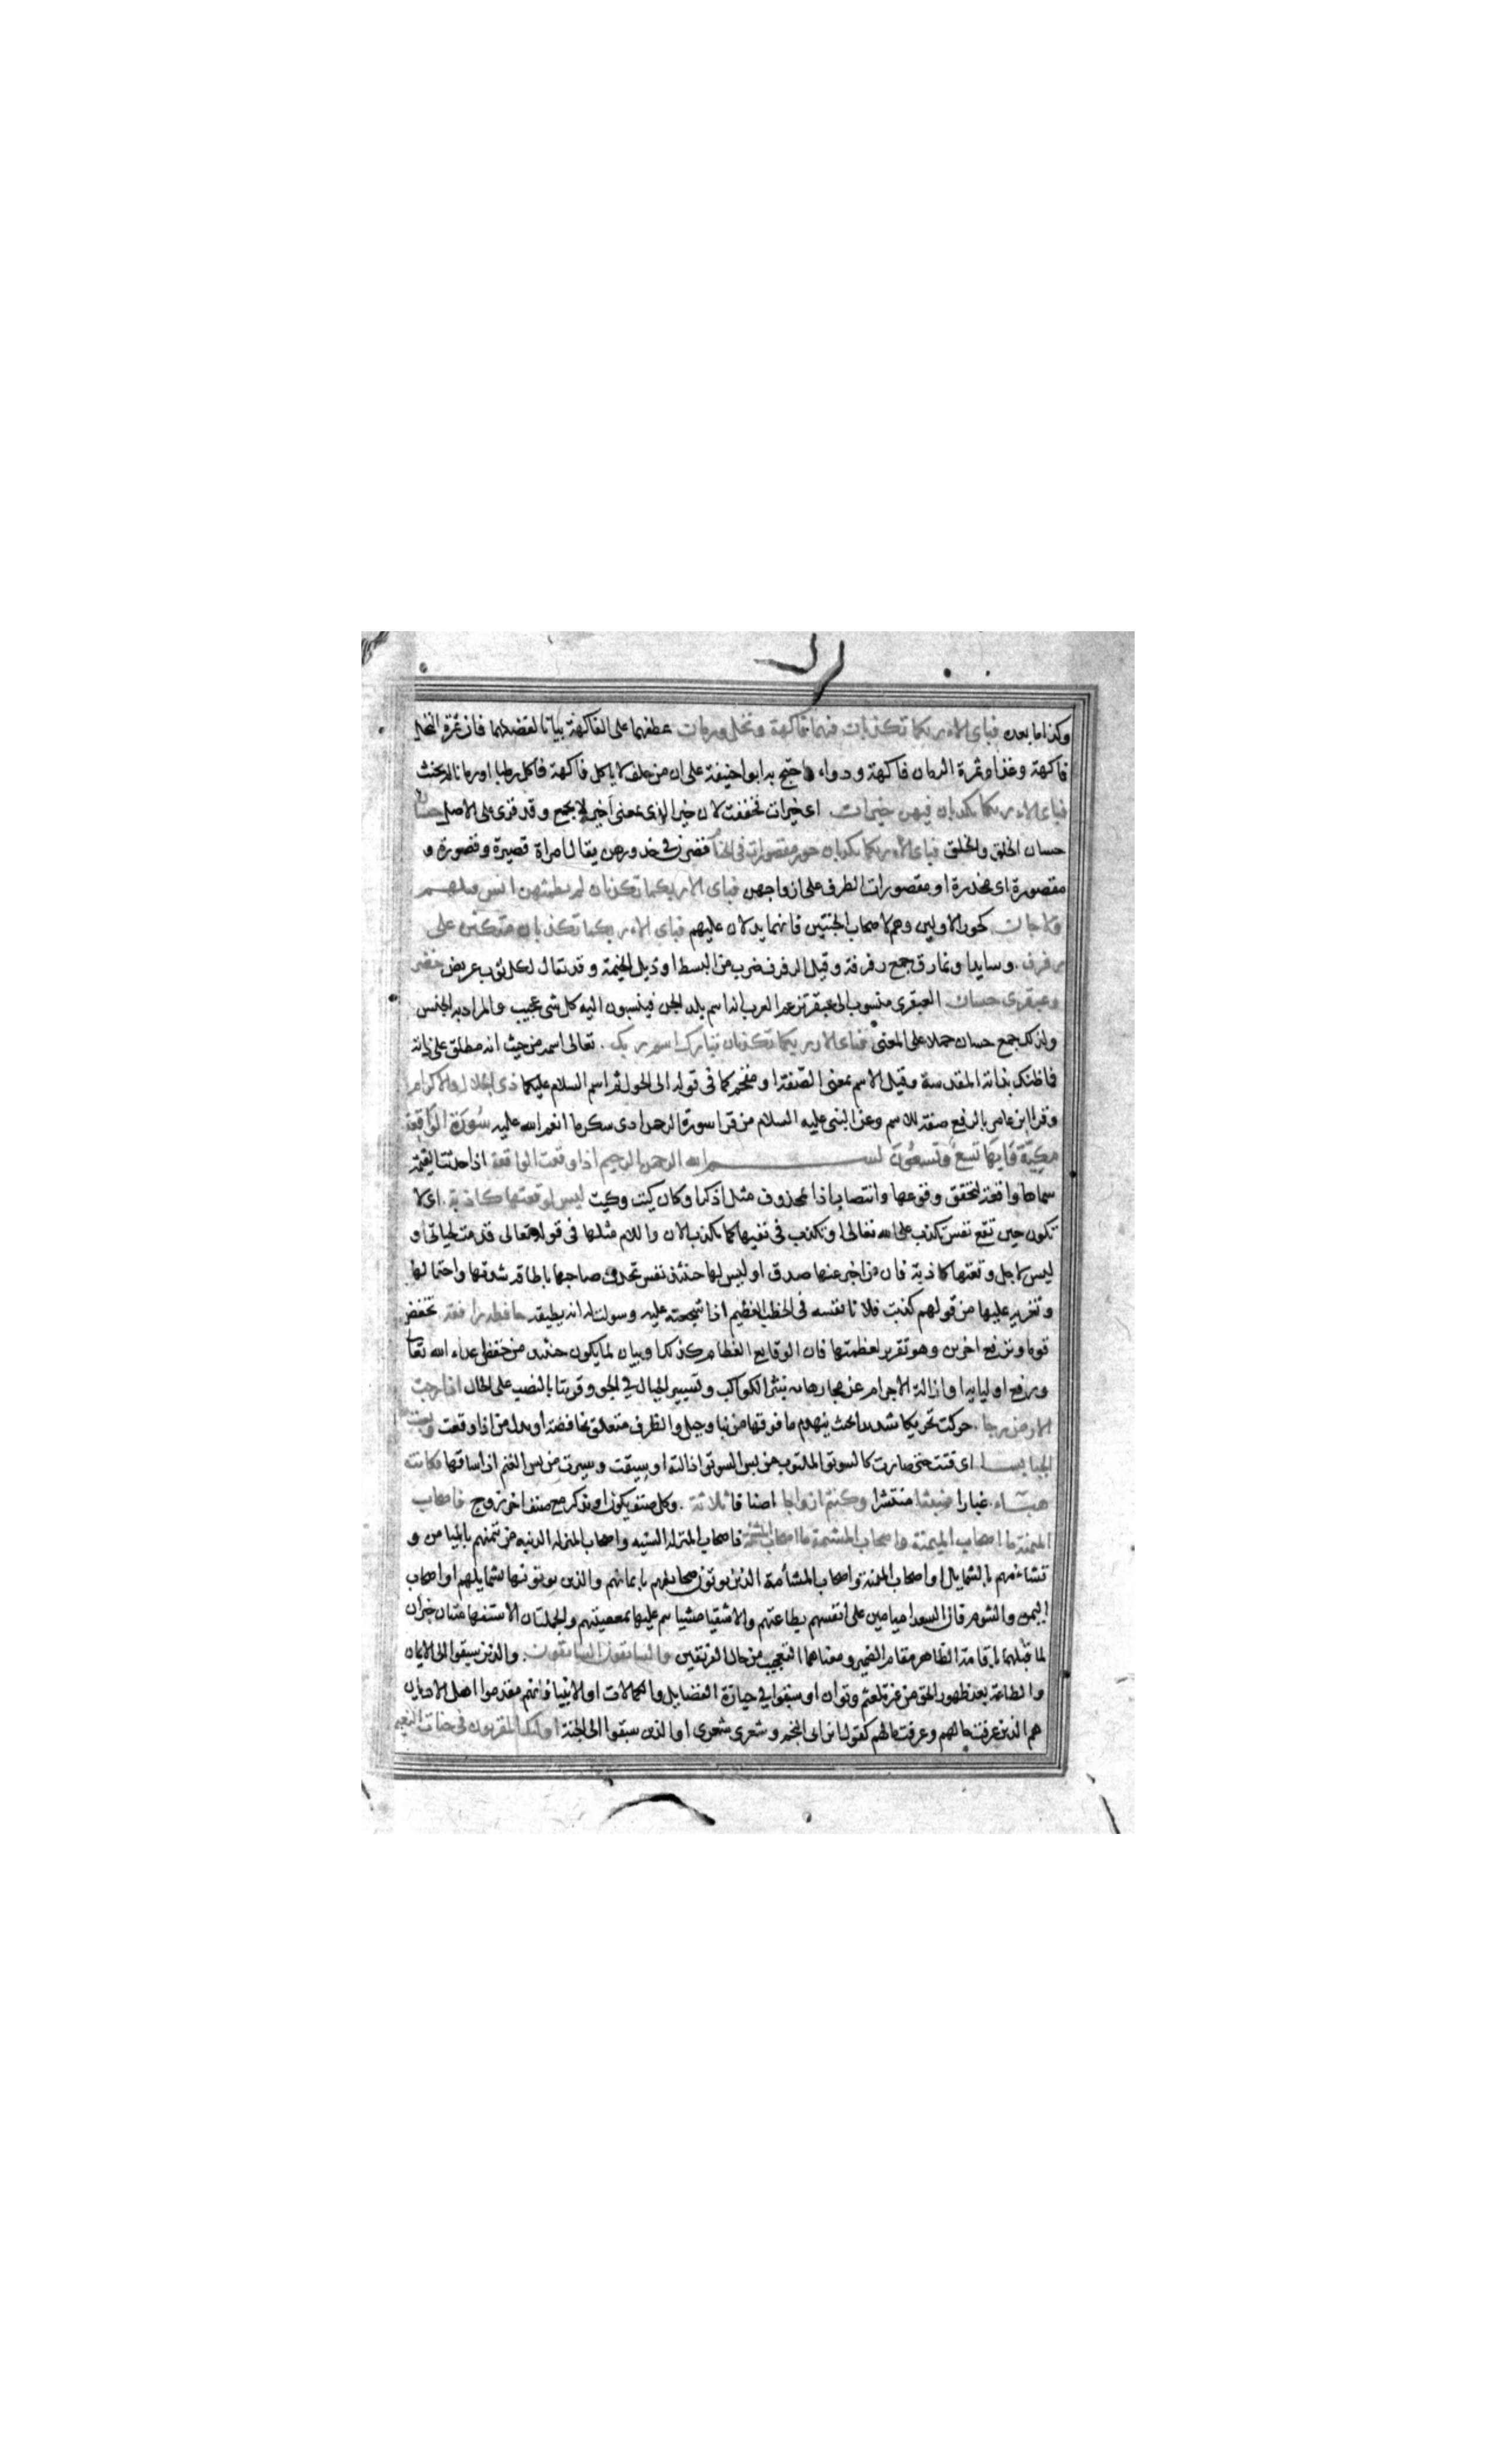 وكذا ما بعده فباى الاء ربكما تكذبان فيهما فاكهة ونخل ورمان عطفهما على الفاكهة بيانا لفضلهما فان ثمرة النخل
فاكهة وغذاء وثمرة الرمان فاكهة ودواء واحتج به ابو احنيفة على ان من حلف لا ياكل فاكهة فاكل رطبا او رمانا لم يحنث
فباى الاء ربكما تكذبان فيهن خيرات اى خيرات فخففت لان خير الذى بمعنى اخير لا يجمع وقد قرى على الاصل حسان
حسان الخلق والخلق فباى الاء ربكما تكذبان حور مقصورات فى الخيام قصرن فى خدورهن يقال امراة قصيرة وقصورة و
مقصورة اى مخدرة او مقصورات الطرف على ازواجهن فباى الاء ربكما تكذبان لم يطمثهن انس قبلهم
ولا جان كحور الاولين وهم لاصحاب الجنتين فانهما يدلان عليهم فباى الاء ربكما تكذبان متكئين على
رفرف وسايد او نمارق جمع رفرفة وقيل الرفرف ضرب من البسط او ذيل الخيمة وقد يقال لكل ثوب عريض خضر
وعبقرى حسان العبقرى منسوب الى عبقر تزعم العرب انه اسم بلد الجن فينسبون اليه كل شى عجيب والمراد به الجنس
ولذلك جمع حسان حملا على المعنى فباى الاء ربكما تكذبان تبارك اسم ربك تعالى اسمه من حيث انه مطلق على ذاته
فما ظنك بذاته المقدسة وقيل الاسم بمعنى الصفة او مقحم كما فى قوله الى الحول ثم اسم السلام عليكما ذى الجلال والاكرام
وقرا ابن عامر بالرفع صفة للاسم وعن النبى عليه السلام من قرا سورة الرحمن ادى شكر ما انعم الله عليه سورة الواقعة
مكية وايها تسع وتسعون بسم الله الرحمن الرحيم اذا وقعت الواقعة اذا حدثت القيمة
سماها واقعة لتحقق وقوعها وانتصاب اذا بمحذوف مثل اذكر او كان كيت وكيت ليس لوقعتها كاذبة اى لا
تكون حين تقع نفس تكذب على الله تعالى او تكذب فى نفيها كما تكذب الان واللام مثلها فى قوله تعالى قدمت لحياتى او
ليس لاجل وقعتها كاذبة فان من اخبر عنها صدق او ليس لها حينئذ نفس تحدث صاحبها باطاقة شدتها واحتمالها
وتغريه عليها من قولهم كذبت فلانا نفسه فى الخطب العظيم اذا شجعته عليه وسولت له انه يطيقه خافضة رافعة تخفض
قوما وترفع اخرين وهو تقرير لعظمتها فان الوقايع العظام كذلك او بيان لما يكون حينئذ من خفض اعداء الله تعالى
ورفع اوليايه او ازالة الاجرام عن مجارها بنثر الكواكب وتسيير الجبال فى الجو وقريتا بالنصب على الحال اذا رجت
الارض رجا حركت تحريكا شديدا بحيث ينهدم ما فوقها من بنا وجبل والظرف متعلق بخافضة او بدل من اذا وقعت وبست
الجبال بسا اى فتتت حتى صارت كالسويق الملتوت من بس السويق اذا لته او سيقت وسيرت من بس الغنم اذا ساقها فكانت
هباء غبارا منبثا منتشرا وكنتم ازواجا اصنافا ثلاثة وكل صنف يكون او يذكر مع صنف اخر زوج فاصحاب
الميمنة ما اصحاب الميمنة واصحاب المشئمة ما اصحاب المشئمة فاصحاب المنزلة السنيه واصحاب المنزله الدنيه من تيمنهم بالميامن و
تشاؤمهم بالشمايل او اصحاب الميمنة واصحاب المشأمة الذين يوتون صحايفهم بايمانهم والذين يوتونها بشمايلهم او اصحاب
اليمن والشوم فان السعدا ميامين على انفسهم بطاعتهم والاشقيا مشيايم عليها بمعصيتهم والجملتان الاستفهاميتان خبران
لما قبلهما باقامة الظاهر مقام الضمير ومعناهما التعجيب من حال الفريقين والسابقون السابقون والذين سبقوا الى الايمان
والطاعة بعد ظهور الحق من غير تلعثم وتوان او سبقوا فى حيازة الفضايل والكمالات او الانبيا فانهم مقدموا اهل الاديان
هم الذين عرفت حالهم وعرفت مالهم كقول ابى النجم وشعرى شعرى او الذين سبقوا الى الجنة اولئك المقربون فى جنات النعيم